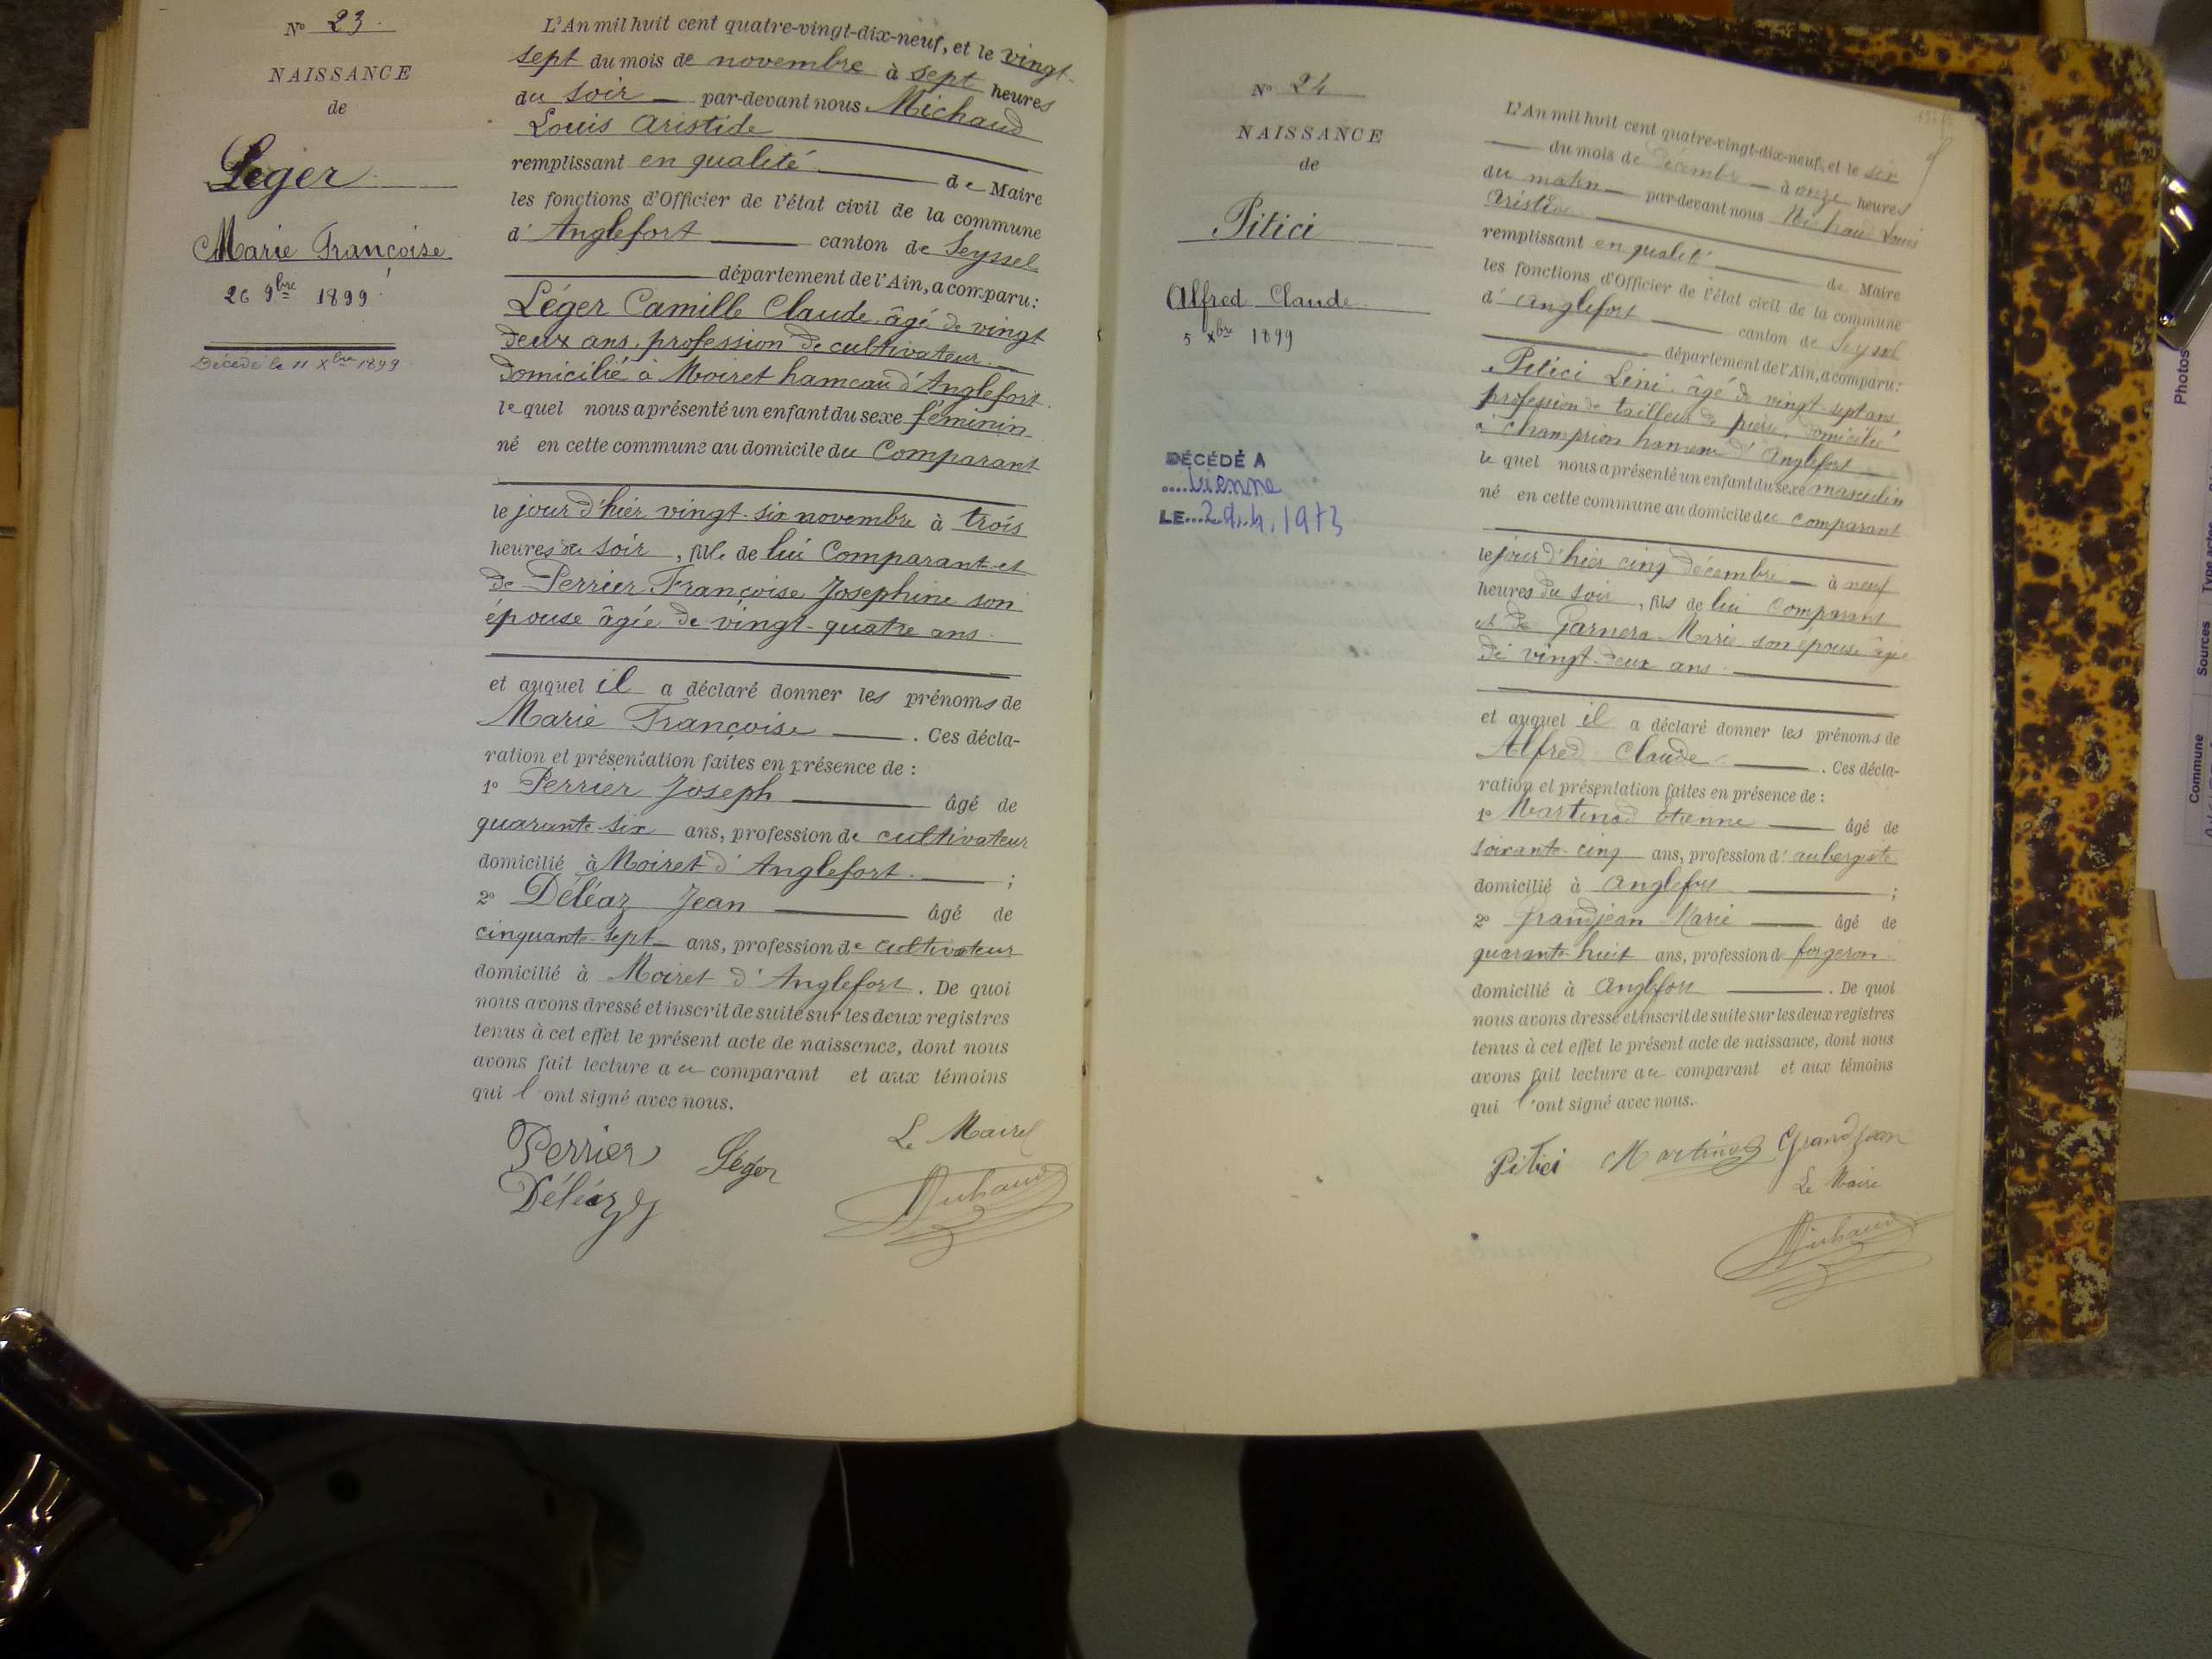 Nº 23
NAISSANCE
de
Léger
Marie Françoise
26 9bre 1899
Décédé le 11 Xbre 1899
L'An mil huit cent quatre-vingt-dix-neuf, et le vingt-
sept du mois de novembre à sept heures
du soir par-devant nous Michaud
Louis Aristide
remplissant en qualité de Maire
les fonctions d'Officier de l'état civil de la commune
d' Anglefort canton de Seyssel
département de l'Ain, a comparu:
Léger Camille Claude âgé de vingt
deux ans, profession de cultivateur
domicilié à Moiret hameau d'Anglefort
lequel nous a présenté un enfant du sexe féminin
né en cette commune au domicile du Comparant
le jour d'hier vingt-six novembre à trois
heures du soir, fille de lui Comparant et
de Perrier Françoise Josephine son
épouse âgée de vingt-quatre ans.
et auquel il a déclaré donner les prénoms de
Marie Françoise . Ces décla-
ration et présentation faites en présence de :
1º Perrier Joseph âgé de
quarante-six ans, profession de cultivateur
domicilié à Moiret d'Anglefort. ;
2º Déléaz Jean âgé de
cinquante-sept ans, profession de cultivateur
domicilié à Moiret d'Anglefort. De quoi
nous avons dressé et inscrit de suite sur les deux registres
tenus à cet effet le présent acte de naissance, dont nous
avons fait lecture au comparant et aux témoins
qui l'ont signé avec nous.
Perrier Léger Le Maire
Déléaz Michaud
Nº 24
NAISSANCE
de
Pitici
Alfred Claude
5 Xbre 1899
DÉCÉDÉ A
Vienne
LE 29.4.1973
L'An mil huit cent quatre-vingt-dix-neuf, et le six
du mois de Décembre à onze heures
du matin par-devant nous Michaud Louis
Aristide
remplissant en qualité de Maire
les fonctions d'Officier de l'état civil de la commune
d' Anglefort canton de Seyssel
département de l'Ain, a comparu:
Pitici Lini âgé de vingt-sept ans
profession de tailleur de pierre, domicilié
à Champrion hameau d'Anglefort
lequel nous a présenté un enfant du sexe masculin
né en cette commune au domicile du comparant
le jour d'hier cinq décembre à neuf
heures du soir, fils de lui Comparant
et de Garnera Marie son épouse âgée
de vingt-deux ans.
et auquel il a déclaré donner les prénoms de
Alfred Claude . Ces décla-
ration et présentation faites en présence de :
1º Martinod Etienne âgé de
soixante-cinq ans, profession d'aubergiste
domicilié à Anglefort ;
2º Grandjean Marie âgé de
quarante-huit ans, profession d forgeron
domicilié à Anglefort . De quoi
nous avons dressé et inscrit de suite sur les deux registres
tenus à cet effet le présent acte de naissance, dont nous
avons fait lecture au comparant et aux témoins
qui l'ont signé avec nous.
Pitici Martinod Grandjean
Le Maire
Michaud
Photos
Type actes
Sources
Commune